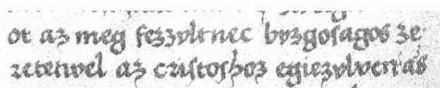 ot az meg fezzyltnec byzgosagos ze
retetwel az cristoshoz egiezylven as